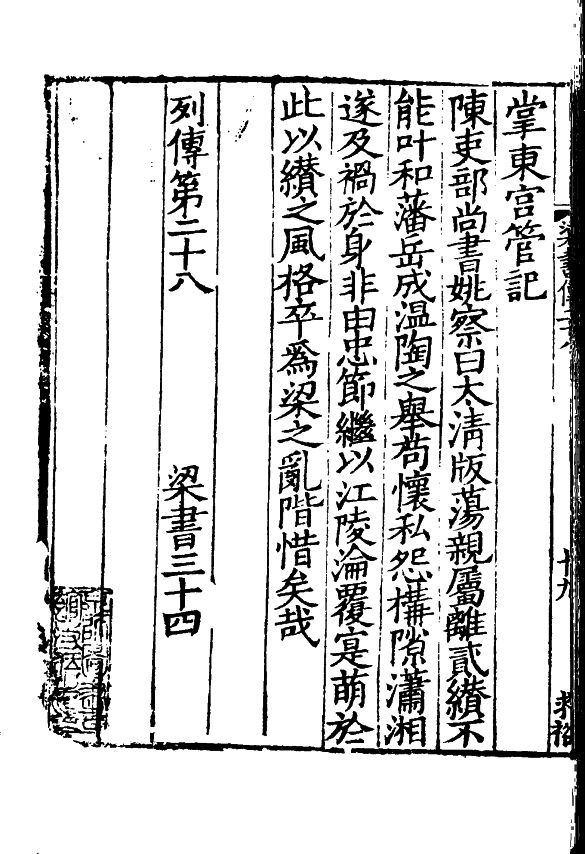 掌東宮管記
陳吏部尚書姚察曰太清版蕩親屬離貳纘不
能叶和藩岳成温陶之舉苟懷私怨構隙瀟湘
遂及禍於身非由忠節繼以江陵淪覆寔萌於
此以纘之風格卒為梁之亂階惜矣哉
列傳第二十八 梁書三十四